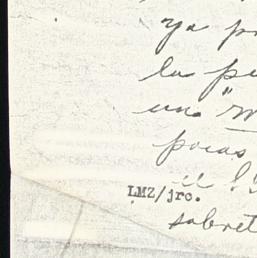 ya p
la pe
un "m
pocas
LMZ/jrc.
sobret